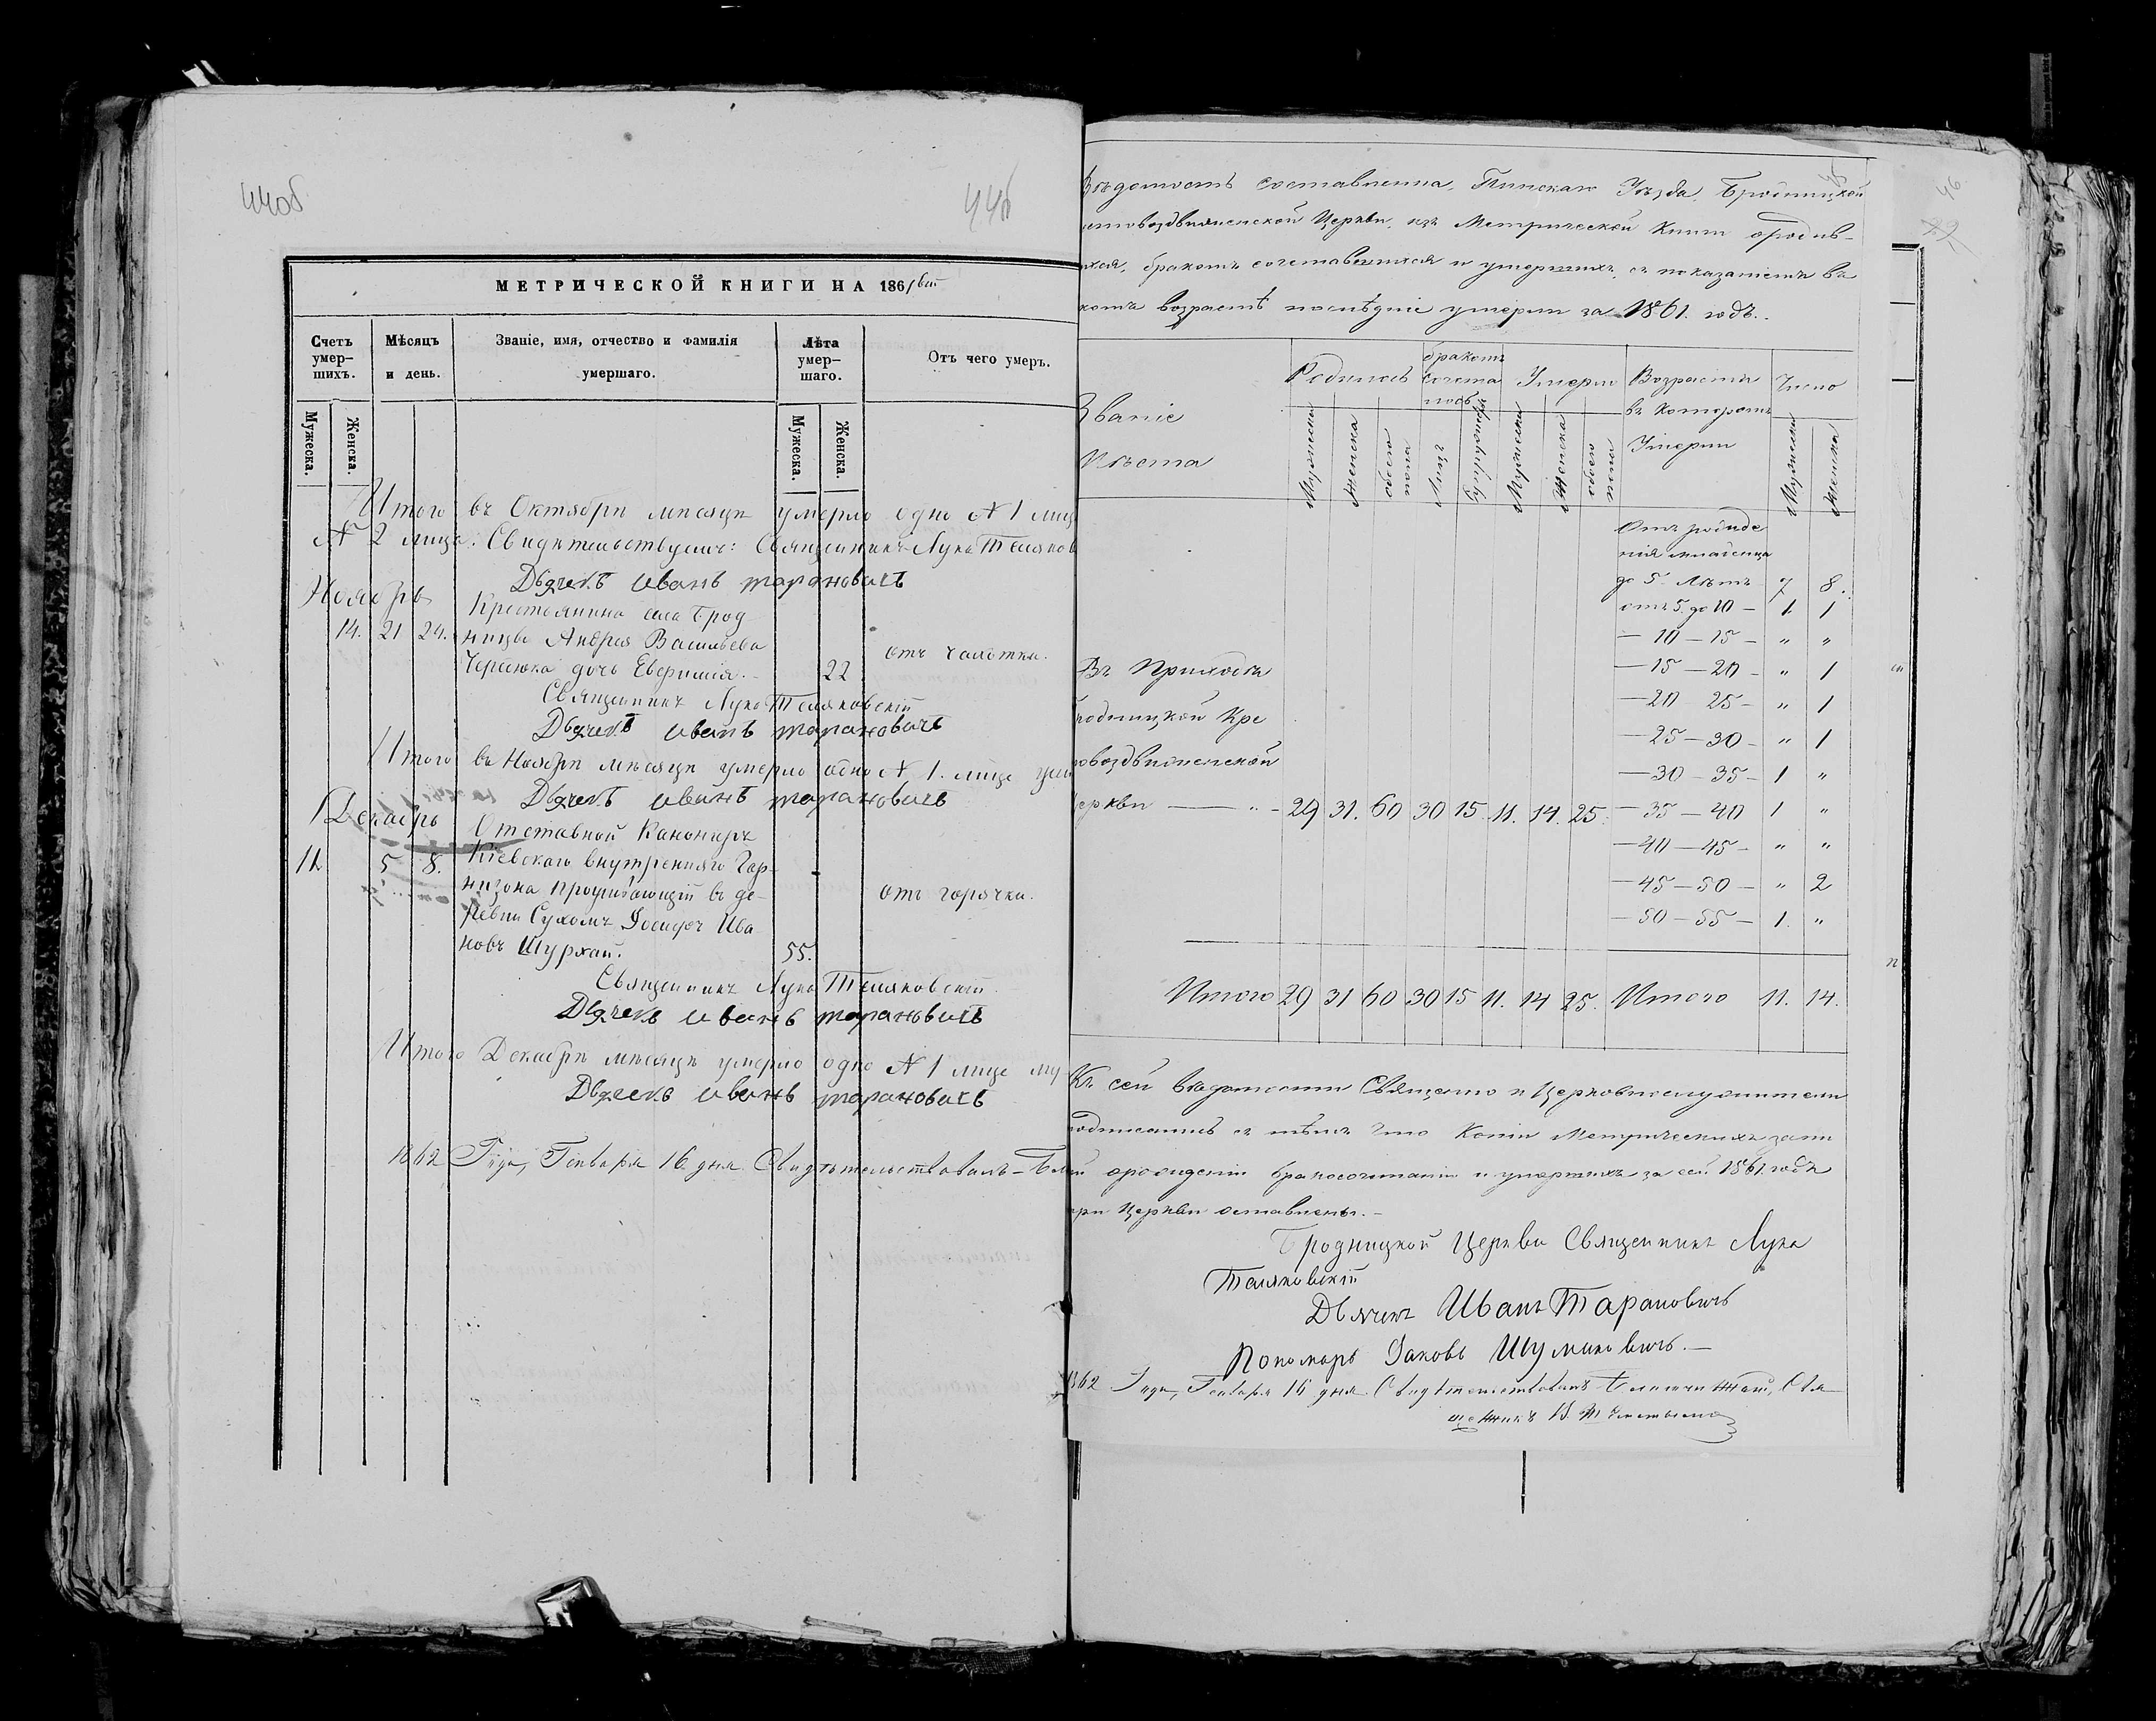 44об
446
МЕТРИЧЕСКОЙ КНИГИ НА 1861
Счетъ умершихъ.
Мѣсяцъ и день.
Званіе, имя, отчество и фамилія умершаго.
Лѣта умершаго.
Отъ чего умеръ.
Мужеска.
Женска.
Мужеска.
Женска.
Итого въ Октябрѣ мѣсяцѣ умерло одно № 1 лице
№ 2 лица. Свидѣтельствуемъ: Священникъ Лука Теляков
Дьячекъ иванъ тарановичъ
Ноябрь
Крестьянина села Брод
14. 21 24. ницы Андрея Васильева
отъ чахотки.
дочь Евфимія. 22
Священникъ Лука Теляковскій
Дьячекъ иванъ тарановичъ
Итого въ Ноябрѣ мѣсяцѣ умерло одно № 1. лице
Дьячекъ иванъ тарановичъ
Декабрь
Отставной Канониръ
11. 5 8. Кіевскаго внутренняго Гар
низона проживающій въ де-
отъ горячки.
ревни Сухомъ Іосифъ Ива
новъ Шурхай. 55.
Священникъ Лука Теляковскій.
Дьячекъ иванъ тарановичъ
Итого Декабрѣ мѣсяцѣ умерло одно № 1 лице му
Дьячекъ иванъ тарановичъ
1862 Года, Генваря 16 дня. Свидѣтельствовалъ
46
Вѣдомость составлена, Пинскаго Уѣзда, Бродницкой
стовоздвиженской Церкви, изъ Метрической Книги ородив-
ихся, бракомъ сочетавшихся и умершихъ, съ показаніемъ въ
комъ возрастѣ послѣдніе умерли за 1861. годъ.
Званіе
Мѣста
Родилось
бракомъ сочеталось
Умерло
Возрастъ въ которомъ Умерли
Число
Мужеска
Женска
обоего пола
Лицъ
Супружествъ
Мужеска
Женска
обоего пола
Мужеска
Женска
Отъ рожде
нія младенца
до 5. Лѣтъ 7 8.
отъ 5. до 10 — 1. 1
— 10 — 15 — „ „
— 15 — 20 — „ 1
— 20 25 — „ 1
— 25 — 30 — „ 1
— 30 — 35 — 1 „
— 35 — 40 1 „
— 40 — 45 — „ „
— 45 — 50 — „ 2
— 50 — 55 — 1. „
Въ Приходѣ
родницкой Кре
товоздвиженской
еркви — 29 31. 60 30 15. 11. 14. 25.
Итого 29 31 60 30 15 11. 14 25. Итого 11. 14.
Къ сей вѣдомости Священно и Церковнослужители
подписались съ тѣмъ что Копіи Метрическихъ запи
орожденіи бракосочетаніи и умершихъ за сей 1861. годъ
при Церкви оставлены. —
Бродницкой Церкви Священникъ Лука
Теляковскій
Дьячекъ Иванъ Тарановичъ
Пономарь Іаковъ Шумановичъ. —
1862 Года, Генваря 16 дня. Свидѣтельствовалъ Благочинный, Свя
щенникъ